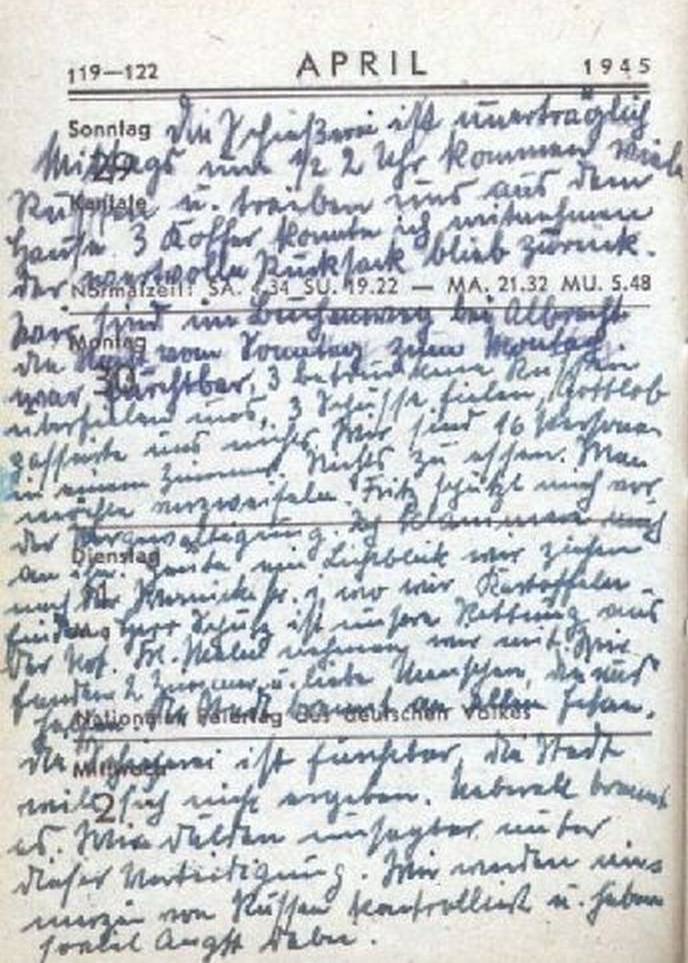 119—122 APRIL 1945
Sonntag Die Schießerei ist unerträglich
Mittags um ½ 2 Uhr kommen viele
29
Kantate
Russen u. treiben uns aus dem
Hause. 3 Koffer konnte ich mitnehmen
der wertvolle Rucksack blieb zurück.
Normalzeit: SA. 4.34 SU. 19.22 — MA. 21.32 MU. 5.48
Wir sind im Buchenweg bei Albrecht.
Montag
die Nacht vom Sonntag zum Montag
30
war furchtbar, 3 betrunkene Russen
überfielen uns, 3 Schüsse fielen, Gottlob
passierte uns nichts. Wir sind 16 Personen
in einem Zimmer. Nichts zu essen. Man
möchte verzweifeln. Fritz schützt mich vor
der Vergewaltigung. Ich klammere mich
Dienstag
an ihn. Heute ein Lichtblick wir ziehen
1
nach der Wernickestr., wo wir Kartoffeln
finden. Herr Schulz ist unsere Rettung aus
der Not. Fr. nehmen wir mit. Wir
fanden 2 Zimmer u. liebe Menschen, die uns
helfen. Die Stadt brennt an allen Ecken.
Nationaler Feiertag des deutschen Volkes
Mittwoch
die Schießerei ist furchtbar, die Stadt
2
will sich nicht ergeben. Ueberall brennt
es. Wir dulden unsagbar unter
dieser Verteidigung. Wir werden uns
von Russen kontrolliert u. haben
soviel Angst dabei.